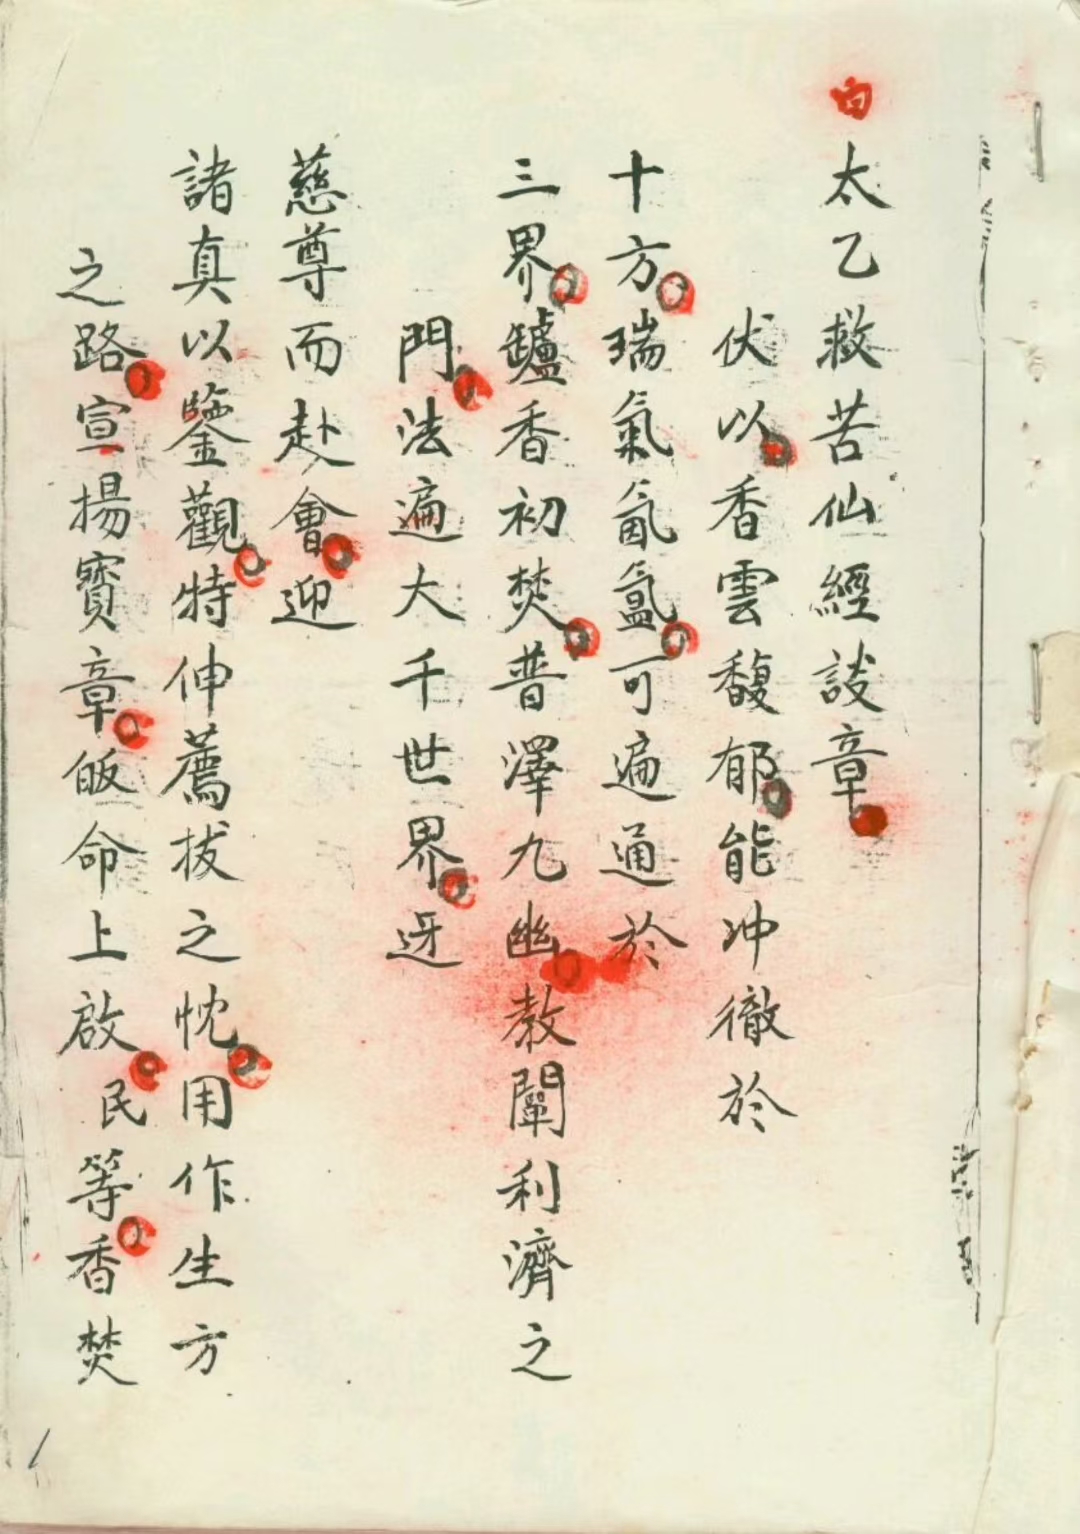 白
太乙救苦仙經談章
伏以香雲馥郁能冲徹於
十方瑞氣氤氳可遍通於
三界鑪香初焚普澤九幽教闡利濟之
門法遍大千世界迓
慈尊而赴會迎
諸真以鑒觀特伸薦拔之忱用作生方
之路宣揚寶章皈命上啟民等香焚